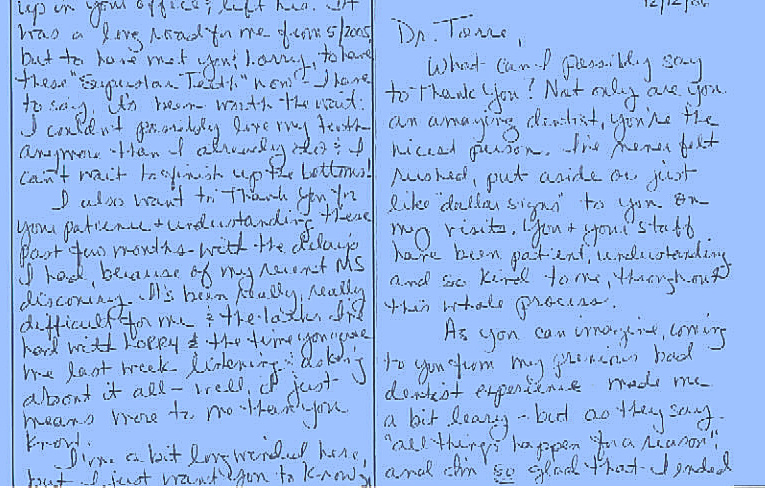 12/12/06
Dr. Torre,
What can I possibly say
to thank you? Not only are you
an amazing dentist, you're the
nicest person. I've never felt
rushed, put aside or just
like "dollar signs" to you on
my visits. You + your staff
have been patient, understanding
and so kind to me, throughout
this whole process.
As you can imagine, coming
to you from my previous bad
dentist experience made me
a bit leary - but as they say -
"all things happen for a reason",
and I'm so glad that I ended
up in your office & left his. It
was a long road for me from 5/2005,
but to have met you & to have
these "Superstar Teeth" now - I have
to say, it's been worth the wait.
I couldn't possibly love my teeth
anymore than I already do & I
can't wait to finish up the bottoms!
I also want to thank you for
your patience + understanding these
past few months with the delays
I had, because of my recent MS
discovery. It's been really, really
difficult for me & the talks I've
had with & the time you gave
me last week listening & asking
about it all - well, it just
means more to me than you
know.
I'm a bit longwinded here,
but I just want you to know,